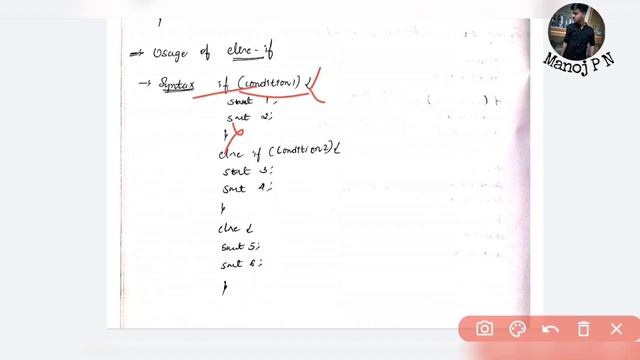 ⇒ Usage of else-if
→ Syntax if (condition1) {
stmt 1;
stmt 2;
}
else if (condition2) {
stmt 3;
stmt 4;
}
else {
stmt 5;
stmt 6;
}
Manoj P N